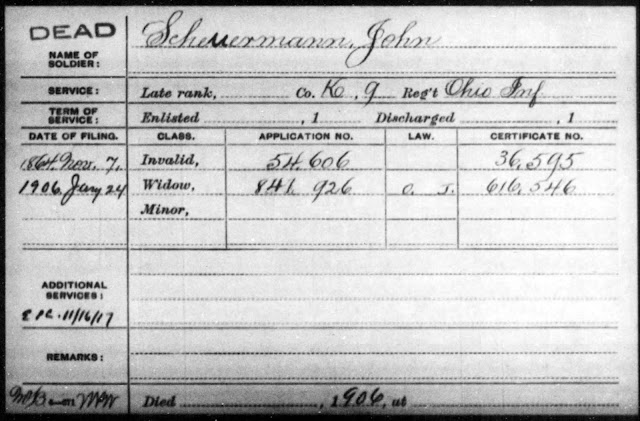 DEAD
NAME OF SOLDIER: Scheuermann, John
SERVICE: Late rank, Co. K, 9 Reg't Ohio Inf
TERM OF SERVICE: Enlisted , 1 Discharged , 1
DATE OF FILING. CLASS. APPLICATION NO. LAW. CERTIFICATE NO.
1864. Nov. 7. Invalid, 54.606 36.595
1906, Jany 24 Widow, 841.926 O. J. 616.546
Minor,
ADDITIONAL SERVICES:
11/16/17
REMARKS:
Died , 1906, at